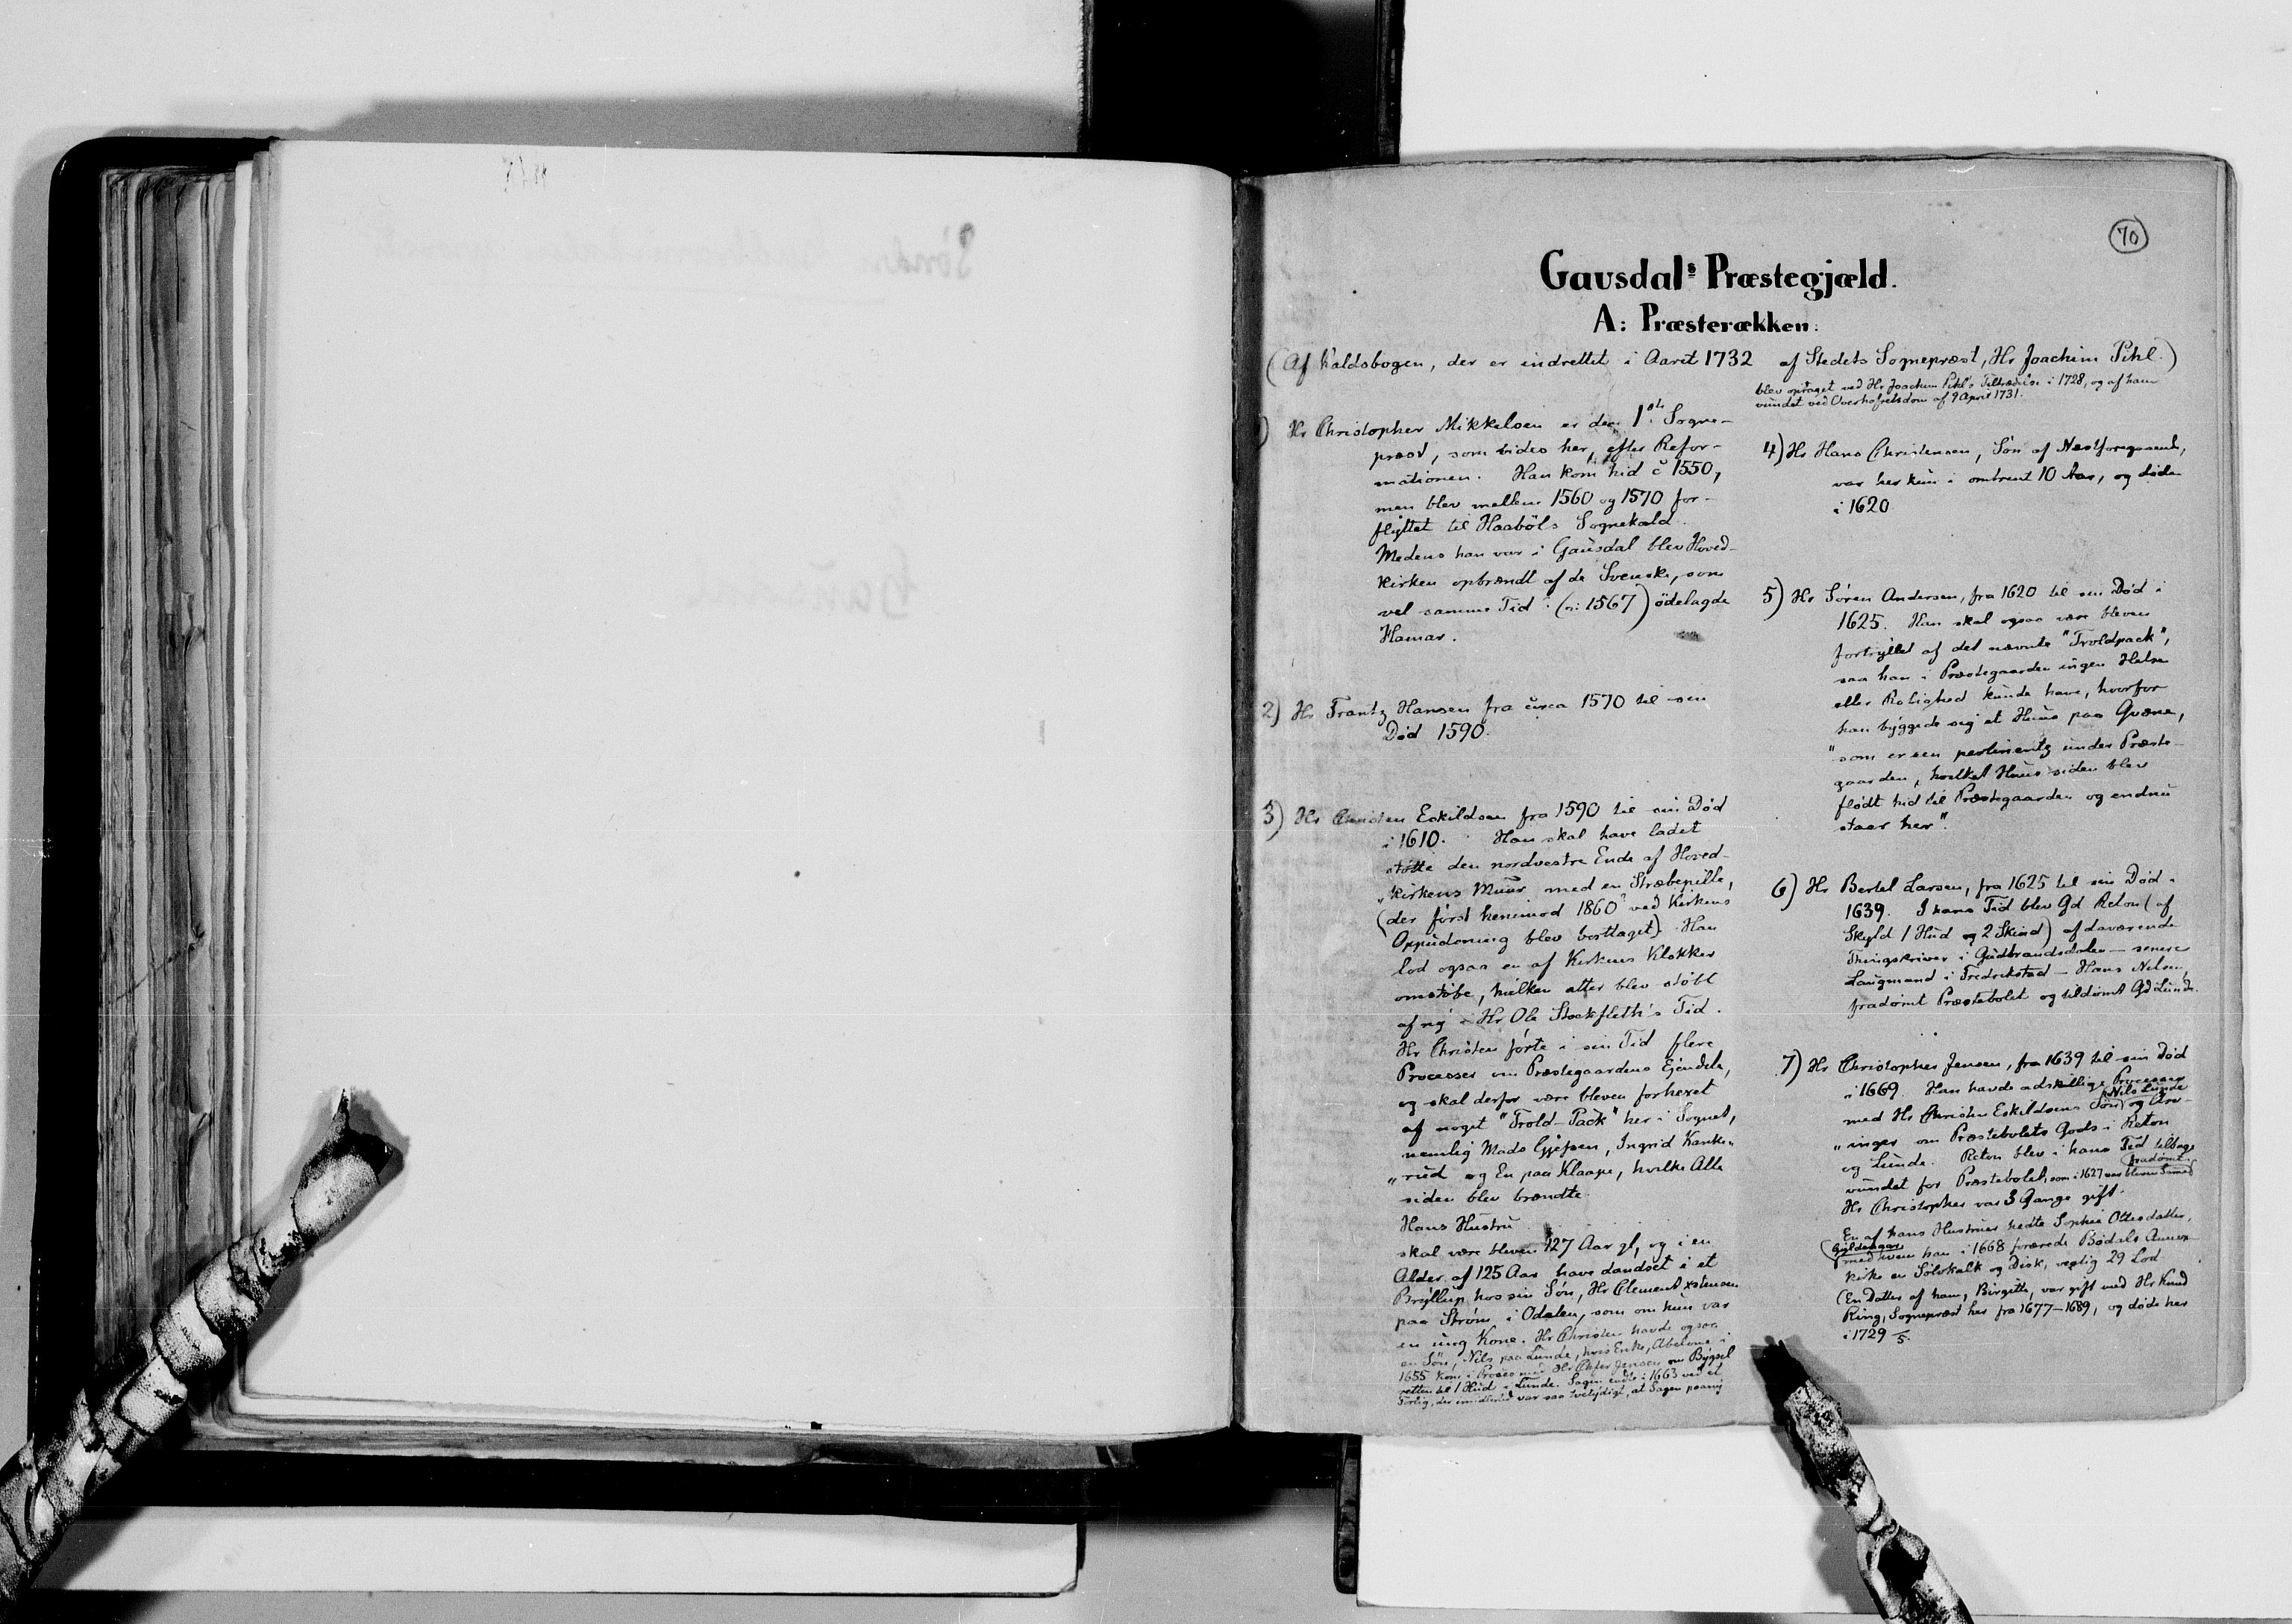 70
Gausdals Præstegjæld.
A: Præsterækken.
(Af Kaldsbogen, der er indrettet i Aaret 1732 af Stedets Sognepræst, Hr Joachim Pihl.)
1) Hr Christopher Mikkelsen er den 1ste Sogne-
præst, som vides her, efter Refor-
mationen. Han kom hid c 1550,
men blev mellem 1560 og 1570 for-
flyttet til Haaböls Sognekald.
Medens han var i Gausdal blev Hoved-
kirken opbrændt af de Svenske, som
ved samme Tid (o: 1567) ödelagde
Hamar.
2) Hr Frantz Hansen fra circa 1570 til sin
Död 1590.
3) Hr Christen Eskildsen fra 1590 til sin Död
i 1610. Han skal have ladet
stötte den nordvestre Ende af Hoved-
„kirkens Muur med en Stræbepille,
(der först henimod 1860 ved Kirkens
Oppudsning blev borttaget). Han
lod ogsaa en af Kirkens Klokker
omstöbe, hvilken atter blev stöbt
af ny i Hr Ole Stockfleth's Tid.
Hr Christen förte i sin Tid flere
Processer om Præstegaardens Ejendele,
og skal derfor være bleven forhexet
af noget "Trold-Pack" her i Sognet,
nemlig Mads Gjefsen, Ingrid Kanke-
„rud og En paa Klaape, hvilke Alle
siden blev brændte.
Hans Hustru
skal være bleven 127 Aar gl, og i en
Alder af 125 Aar have dandset i et
Bryllup hos sin Sön, Hr Clement Xstensen
paa Ström i Odalen, som om hun var
en ung Kone. Hr Christen havde ogsaa
en Sön, Nils paa Lunde, hvis Enke, Abelone i
1655 kom i Proces med Hr Chrfer Jensen om Bygsel
retten til 1 Hud i Lunde. Sagen endte i 1663 ved et
Forlig, der imidlertid var saa tvetydigt, at Sagen paany
blev optaget ved Hr Joachim Pihl's Tiltrædelse i 1728, og af ham
vundet ved Overhofretsdom af 9 April 1731.
4) Hr Hans Christensen, Sön af Næstforegaaende,
var her kun i omtrent 10 Aar, og döde
i 1620
5) Hr Sören Andersen, fra 1620 til sin Död i
1625. Han skal ogsaa være bleven
fortryllet af det nævnte "Troldpack",
saa han i Præstegaarden ingen Helse
eller Rolighed kunde have, hvorfor
han byggede sig et Huus paa Qvæne,
"som er een pertinentz under Præste-
gaarden, hvilket Huus siden blev
flödt hid til Præstegaarden og endnu
staar her".
6) Hr Bertel Larsen, fra 1625 til sin Död i
1639. I hans Tid blev Gd Reton (af
Skyld 1 Hud og 2 Skind) af daværende
Thingskriver i Gudbrandsdalen - senere
Laugmand i Fredrikstad - Hans Nilsen,
fradömt Præstebolet og tildömt Gd Lunde.
7) Hr Christopher Jensen, fra 1639 til sin Död
i 1669. Han havde adskillige Processer
med Hr Christen Eskildsens Sön Nils Lunde og Arv-
„inger om Præstebolets Gods i Reton
og Lunde. Reton blev i hans Tid tilbage
vundet for Præstebolet, som i 1627 var bleven samme fradömt.
Hr Christopher var 3 Gange gift.
En af hans Hustruer hedte Sophie Ottesdatter,
Gyldenaar
med hvem han i 1668 forærede Bödals Annex-
kirke en Sölvkalk og Disk, vegtig 29 Lod
(En Datter af ham, Birgitte, var gift med Hr Knud
Ring, Sognepræst her fra 1677-1689, og döde her
i 1729 5.